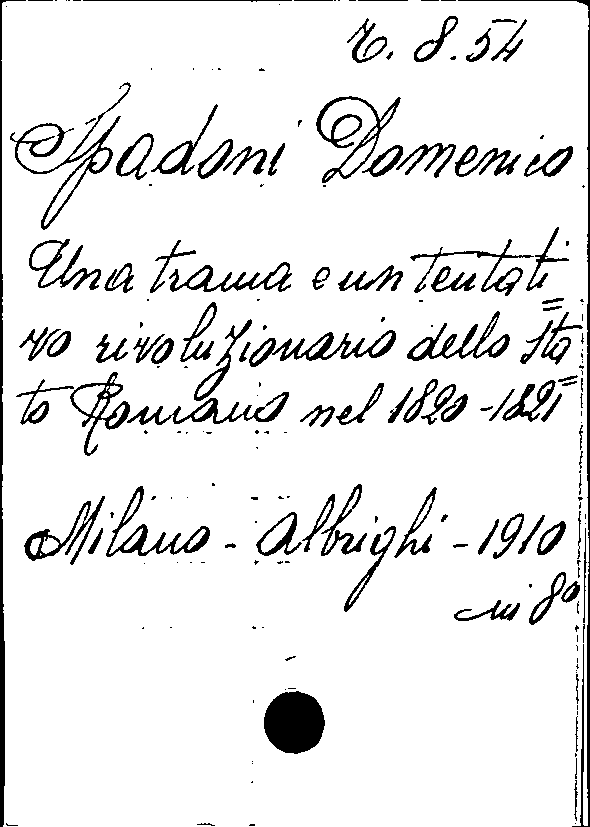 T. 8. 54
Spadoni Domenico
Una trama e un tentati=
vo rivoluzionario dello Sta=
to Romano nel 1820-1821
Milano - Albrighi - 1910
in 8º